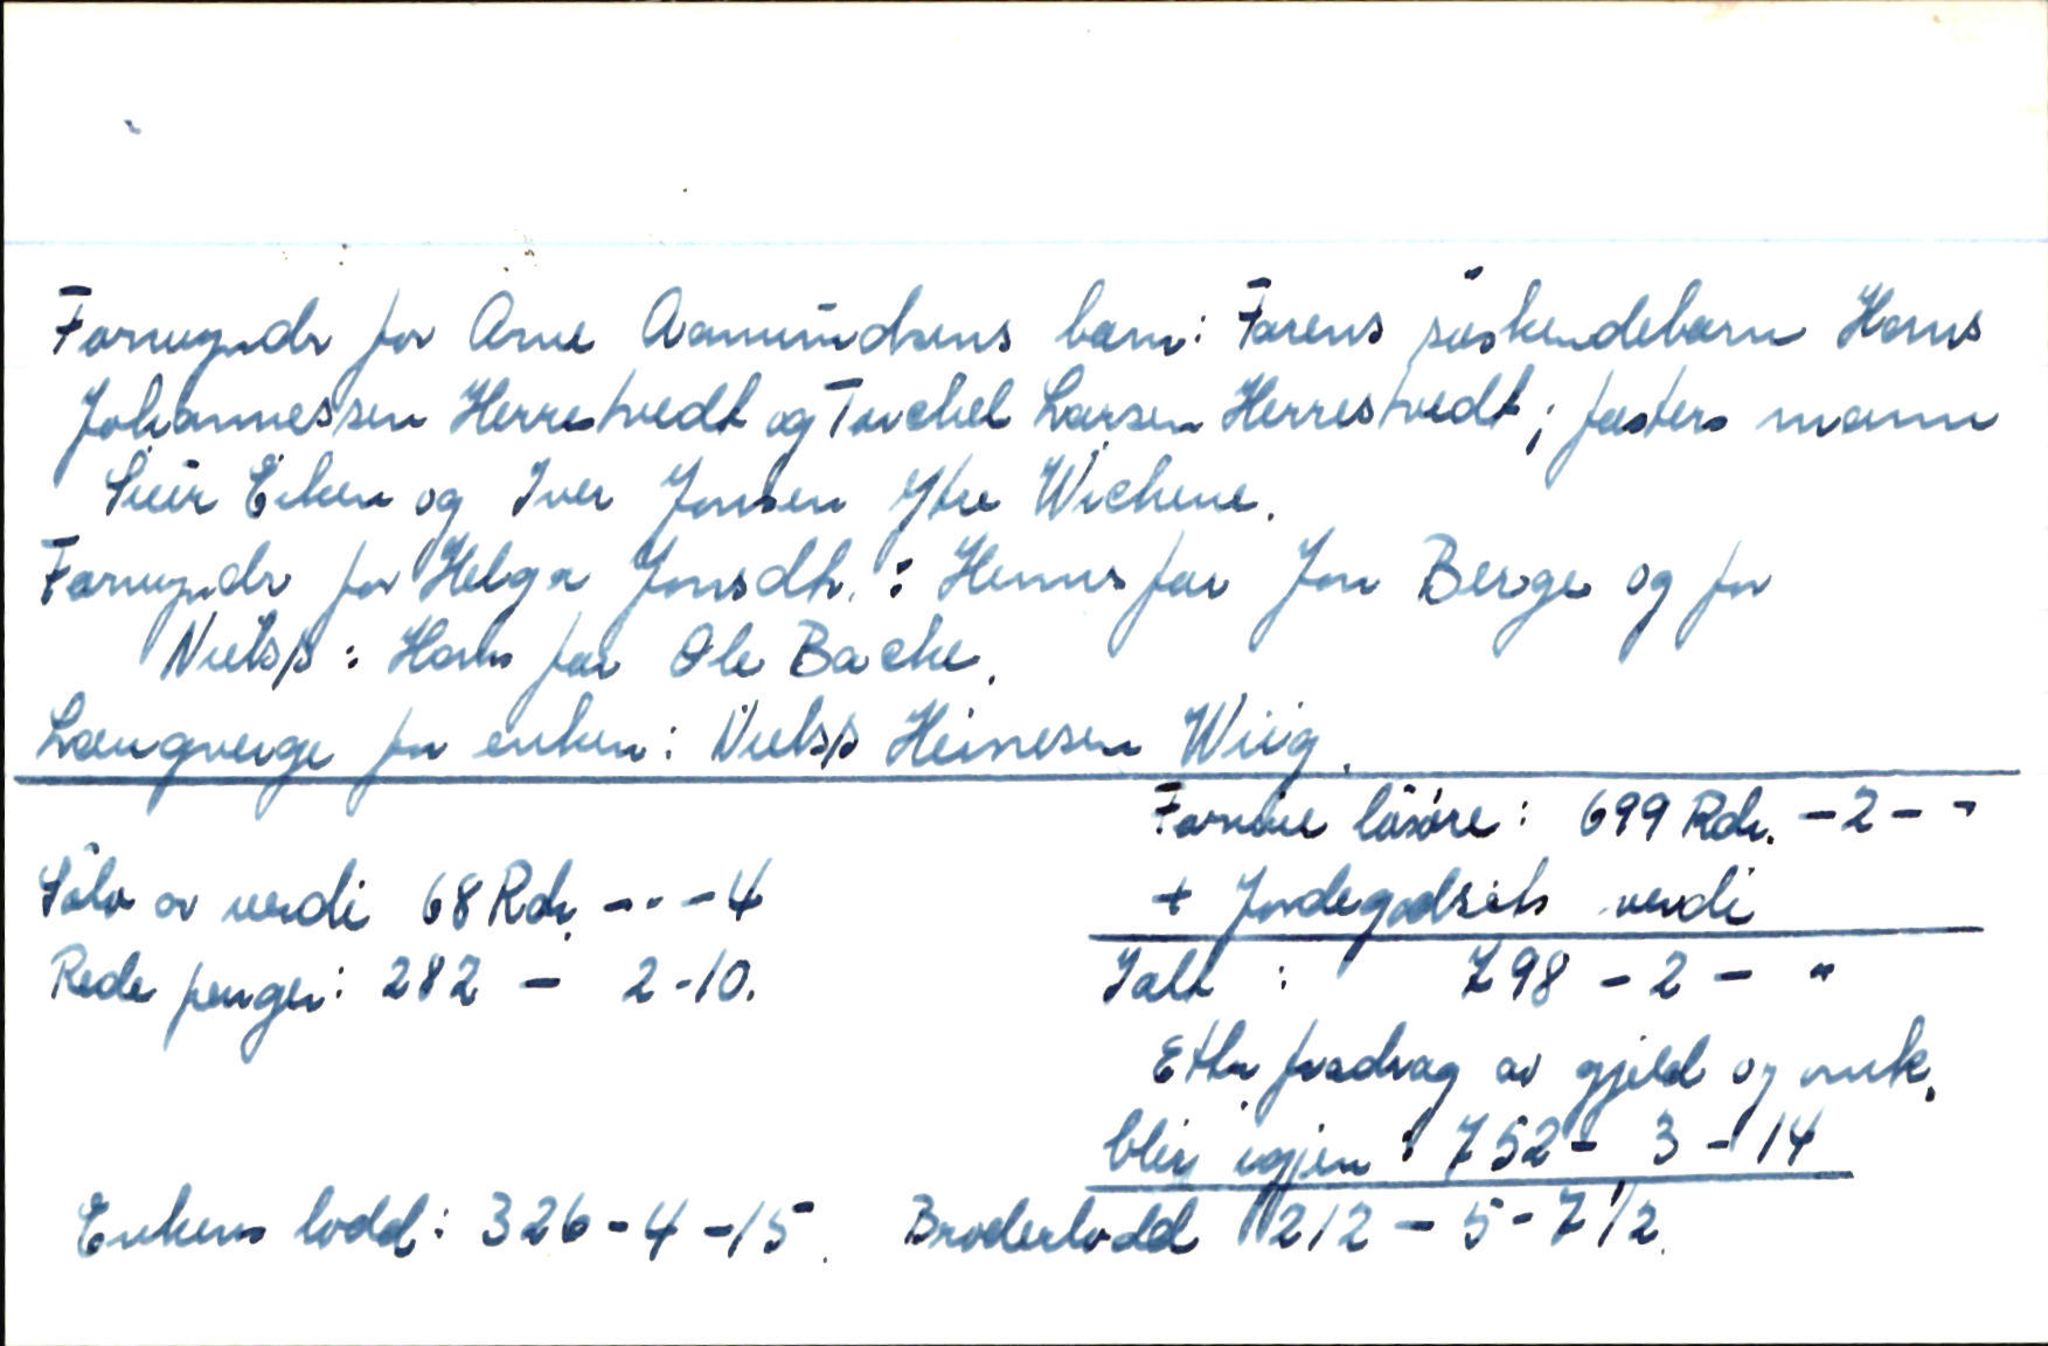 Formyndr for Arne Aamundsens barn: Farens søskendebarn Hans
Johannessen Herrestvedt og Torchel Larsen Herrestvedt; fasters mann
Siur Eiken og Iver Jonsen Ytre Wichene.
Formyndr for Helga Jonsdtr.: Hennes far Jon Berge og for
Niels: Hans far Ole Backe.
Laugverge for enken: Niels Heinesen Wiig.
Formue løsøre: 699 Rdr. - 2 - "
Sølv av verdi 68 Rdr. - - - 4
+ Jordegodsets verdi
Rede penger: 282 - 2 - 10.
Ialt : 798 - 2 - "
Etter fradrag av gjeld og omk.
blir igjen : 752 - 3 - 14
Enkens lodd: 326 - 4 - 15. Broderlodd 212 - 5 - 7 1/2.